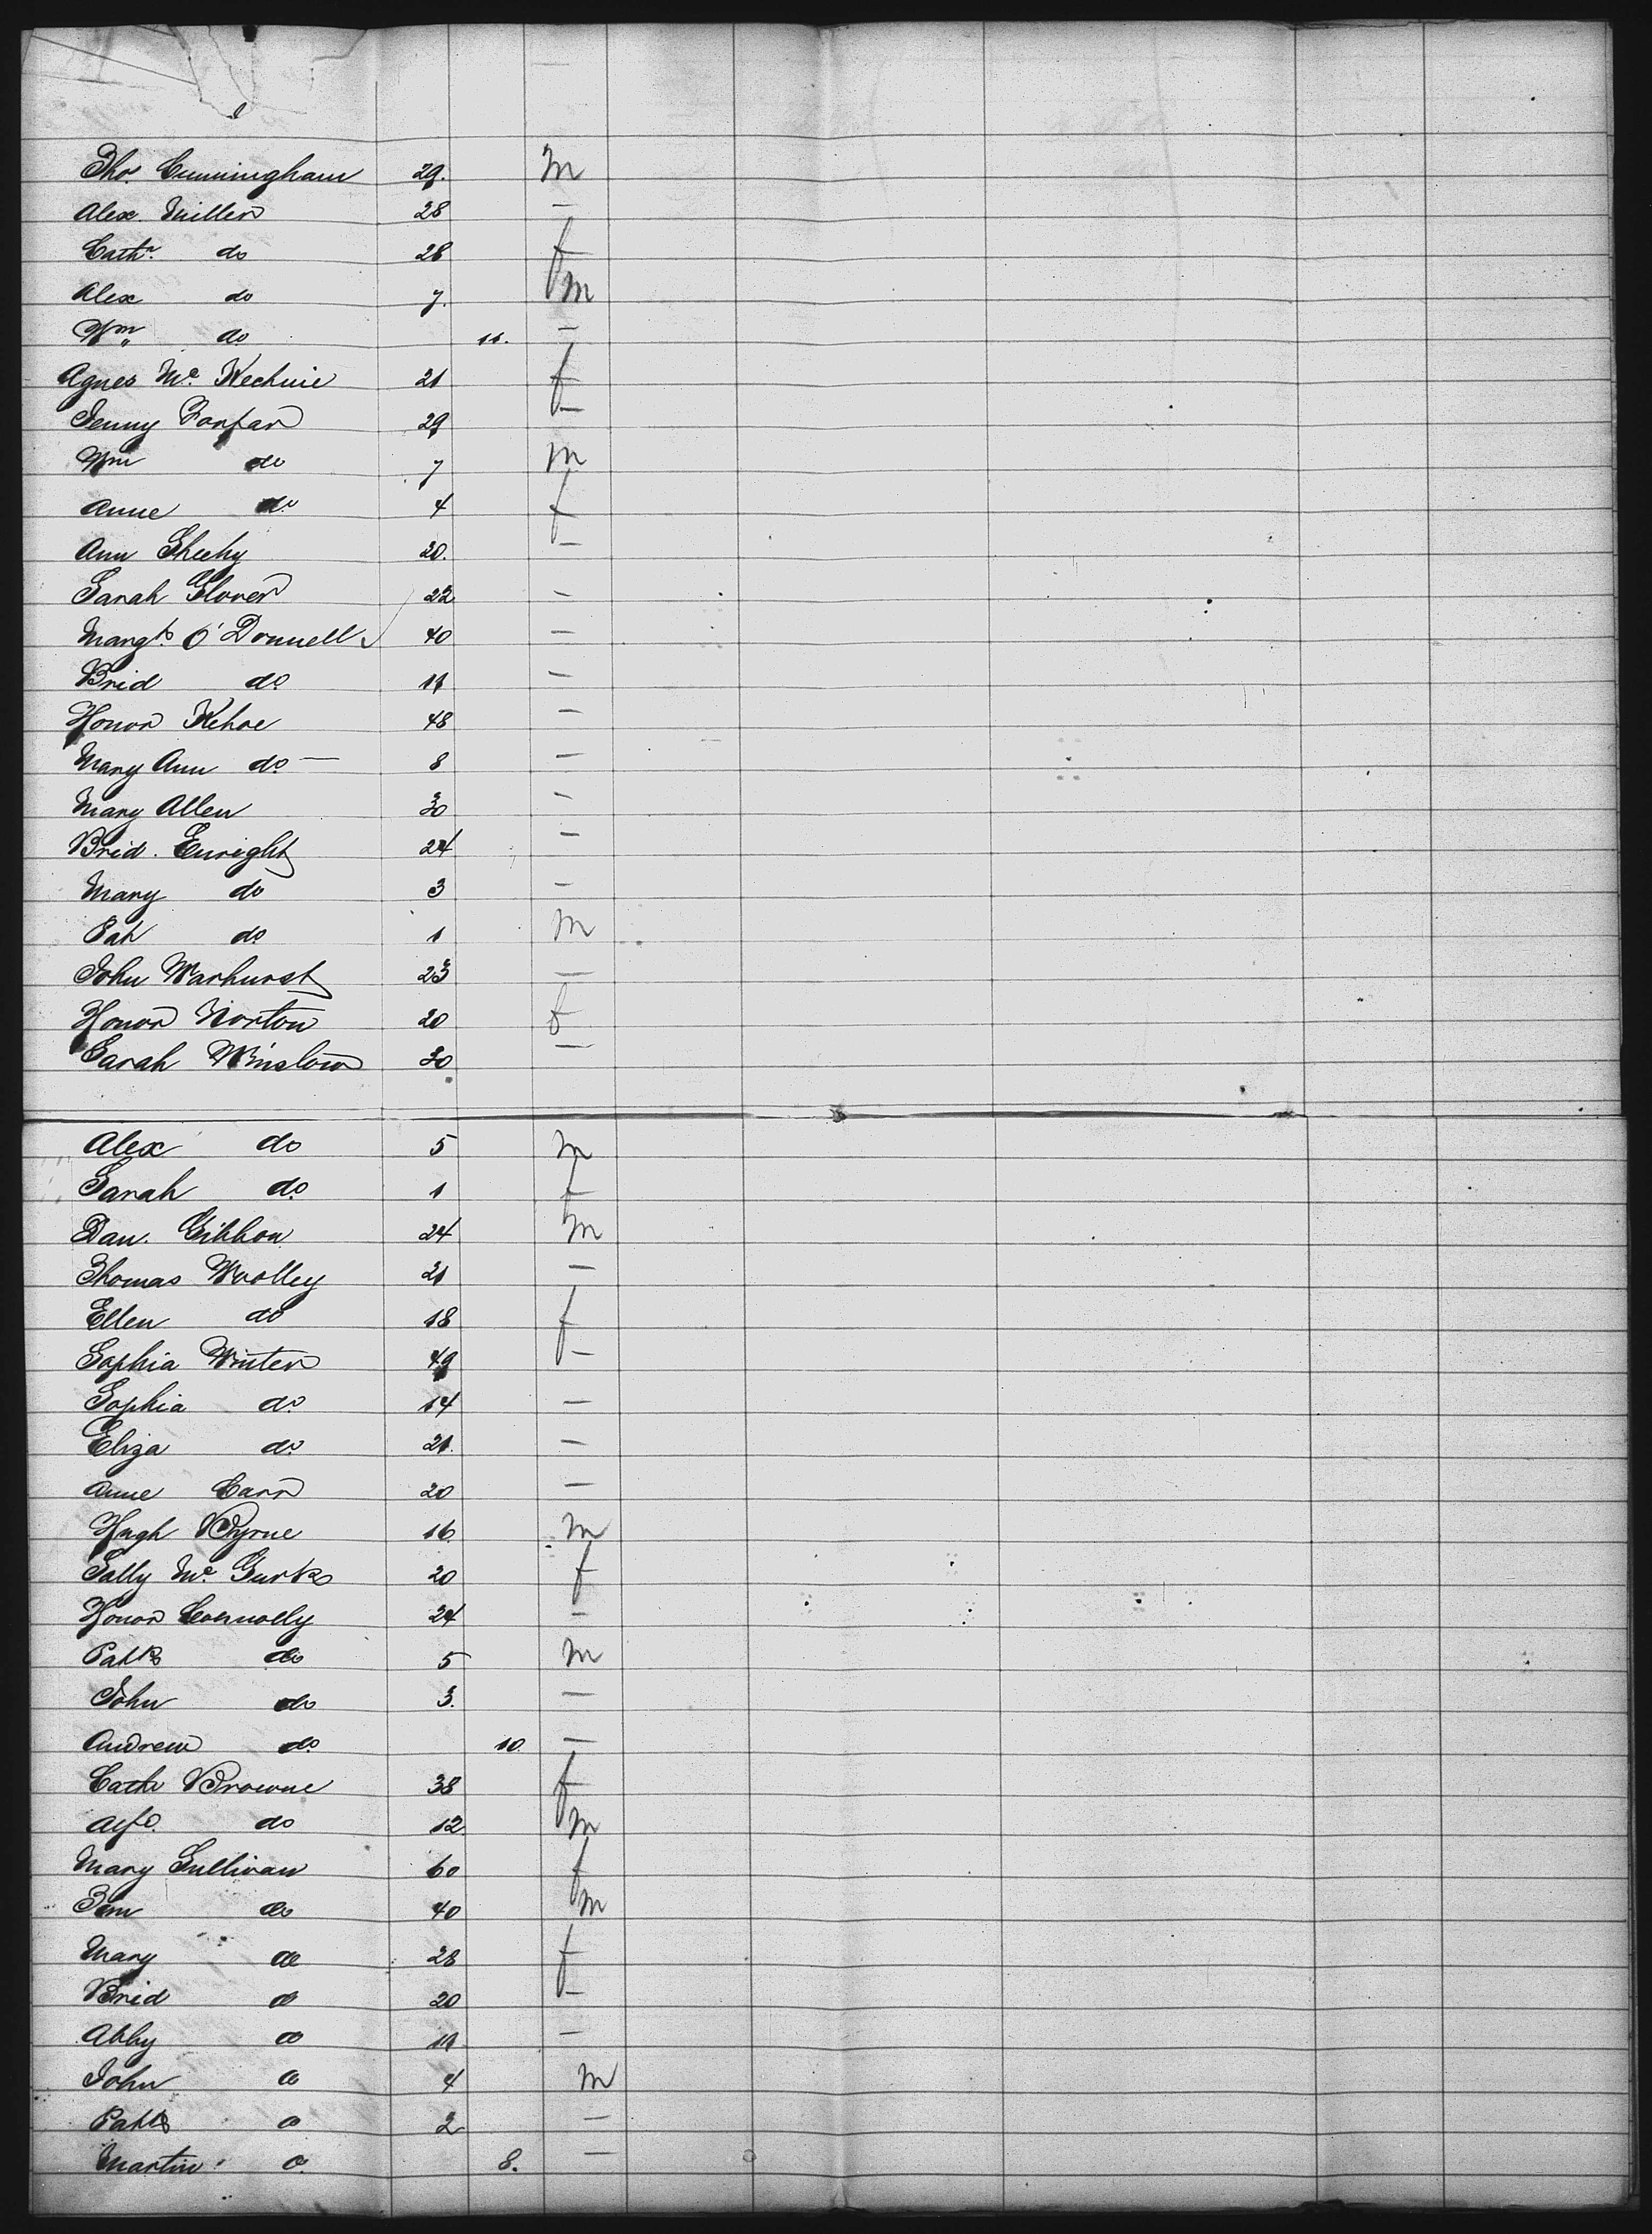 Tho.s Cunningham 29. m
Alex. Miller 28 —
Cath.e do 28 f
Alex do 7. m
Wm do 11. —
Agnes Mc. Kechnie 21 f
Jenny Forfar 29 —
Wm do 7 m
Anne do 4 f
Ann Sheehy 20. —
Sarah Glover 22 —
Margt. O'Donnell 40 —
Brid do 17 —
Honor Kehoe 48 —
Mary Ann do — 8 —
Mary Allen 30 —
Brid. Enright 24 —
Mary do 3 —
Pat do 1 m
John Warhurst 23 —
Honor Norton 20 f
Sarah Winslow 30 —
Alex do 5 m
Sarah do 1 f
Dan. Gibbon 24 m
Thomas Woolley 21 —
Ellen do 18 f
Sophia Winter 49 —
Sophia do 14 —
Eliza do 21. —
Anne Carr 20 —
Hugh Byrne 16. m
Sally Mc. Gurk 20 f
Honor Connolly 24 —
Patk do 5 m
John do 3. —
Andrew do 10. —
Cath Browne 38 f
Alfd. do 12. m
Mary Sullivan 60 f
Tim do 40 m
Mary do 28 f
Brid do 20 —
Abby do 19 —
John do 4 m
Patk do 2 —
Martin do 8. —